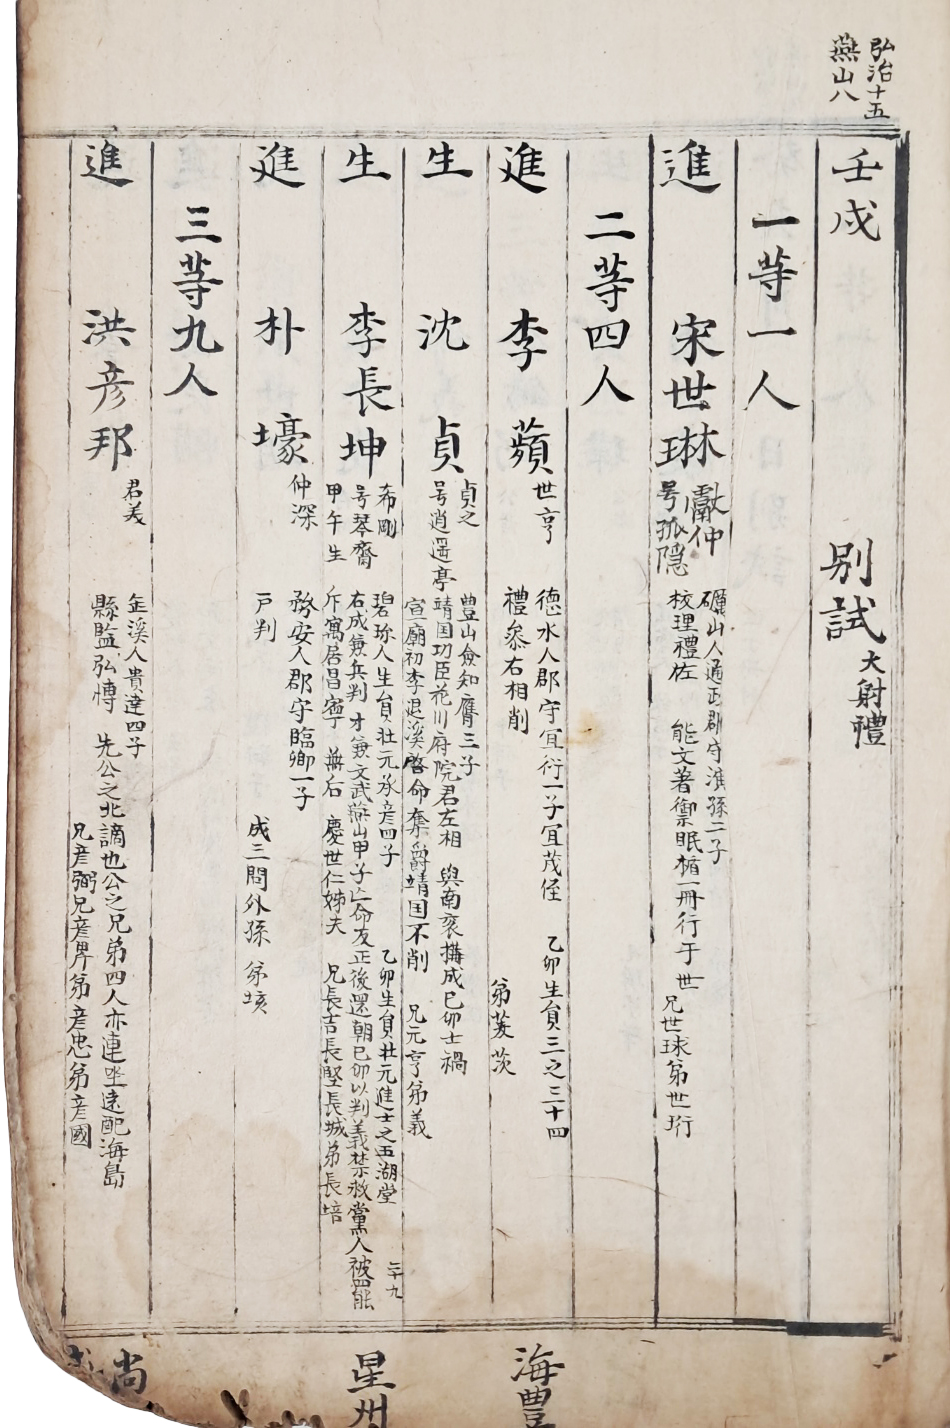 弘治十五
燕山八
壬戌 別試 大射禮
一等一人
進 宋世琳 獻仲
号孤隠
礪山人通政郡守演孫二子
校理禮佐 能文著禦眠楯一冊行于世
兄世球弟世珩
二等四人
進 李蘋 世亨
德水人郡守宜衍一子宜茂侄 乙卯生員三之三十四
禮叅右相削 弟茇茨
生 沈貞 貞之
号逍遥亭
豊山僉知膺三子
靖国功臣花川府院君左相 與南衮搆成己卯士禍
宣廟初李退溪啓命奪爵靖国不削 兄元亨弟義
生 李長坤 希剛
号琴齋
甲午生
碧珎人生員壯元承彦四子 乙卯生員壯元進士之五湖堂
右成兼兵判才兼文武燕山甲子亡命友正後還朝己卯以判義禁救黨人被罷
斥寓居昌寧 無后 慶世仁姊夫 兄長吉長堅長城弟長培
三十九
進 朴壕 仲深
務安人郡守臨卿一子
戸判 成三問外孫 弟垓
三等九人
進 洪彦邦 君美
缶溪人貴達四子
縣監弘博 先公之北謫也公之兄弟四人亦連坐遠配海島
兄彦弼兄彦昇弟彦忠弟彦國
海豊
星州
尚